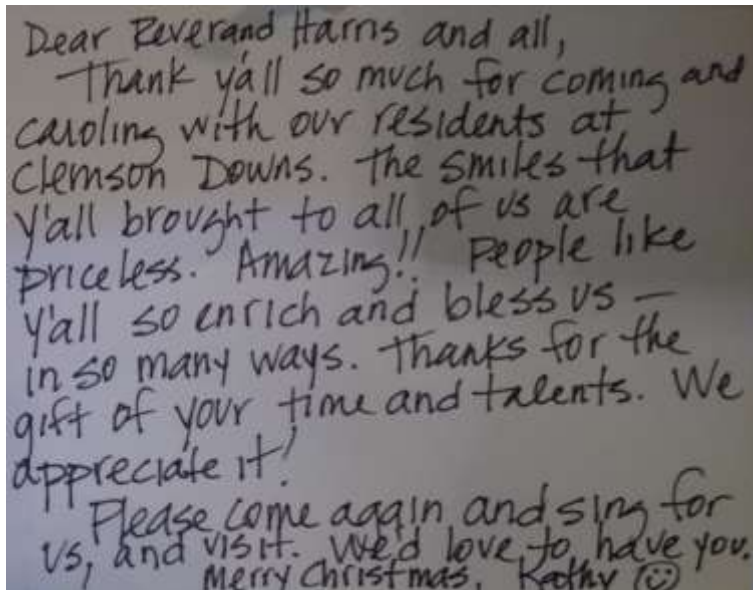 Dear Reverand Harris and all,
Thank y'all so much for coming and
caroling with our residents at
Clemson Downs. The smiles that
y'all brought to all of us are
priceless. Amazing!! People like
y'all so enrich and bless us —
in so many ways. Thanks for the
gift of your time and talents. We
appreciate it!
Please come again and sing for
us, and visit. We'd love to have you.
Merry Christmas, Kathy ☺